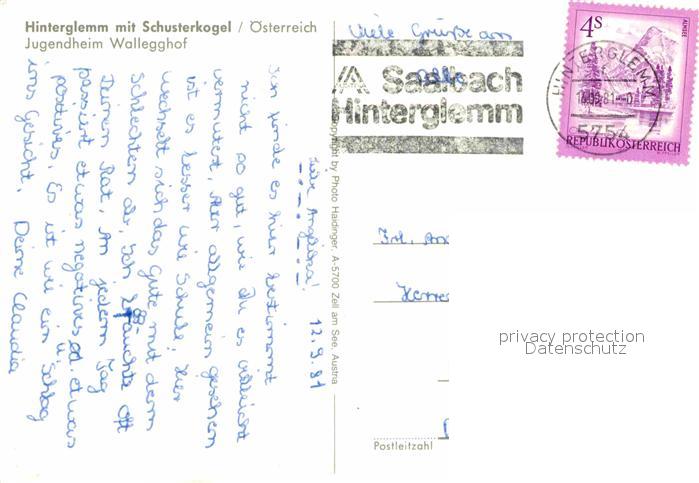 Hinterglemm mit Schusterkogel / Österreich
Jugendheim Wallegghof
12.9.81
Liebe Angelika!
Ich finde es hier bestimmt
nicht so gut, wie Du es vielleicht
vermutest. Aber allgemein gesehen
ist es besser wie Schule; Hier
wechselt sich das Gute mit dem
Schlechten ab. Ich bräuchte oft
Deinen Rat. An jedem Tag
passiert etwas negatives od. etwas
positives. Es ist wie ein Schlag
ins Gesicht. Deine Claudia
Viele Grüße an
alle
Saalbach
Hinterglemm
4S
ALMSEE
REPUBLIK ÖSTERREICH
HINTERGLEMM
5754
Copyright by Photo Haidinger, A-5700 Zell am See, Austria
Frl. An
Herre
Postleitzahl
privacy protection
Datenschutz